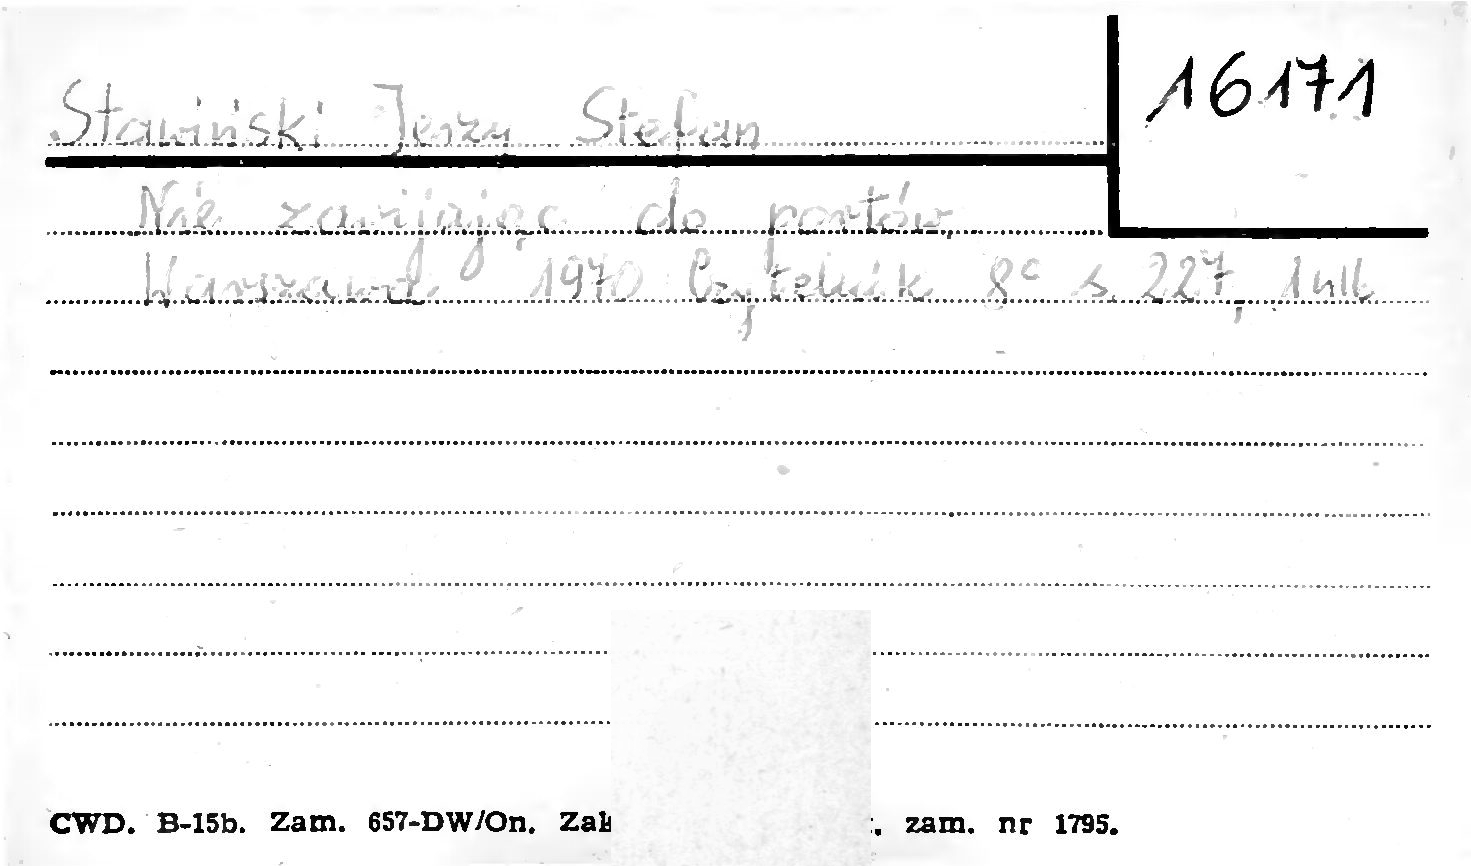 16171
Stawiński Jerzy Stefan
Nie zawijając do portów.
Warszawa 1970 Czytelnik 8° s. 227,
CWD. B-15b. Zam. 657-DW/On. Zak , zam. nr 1795.